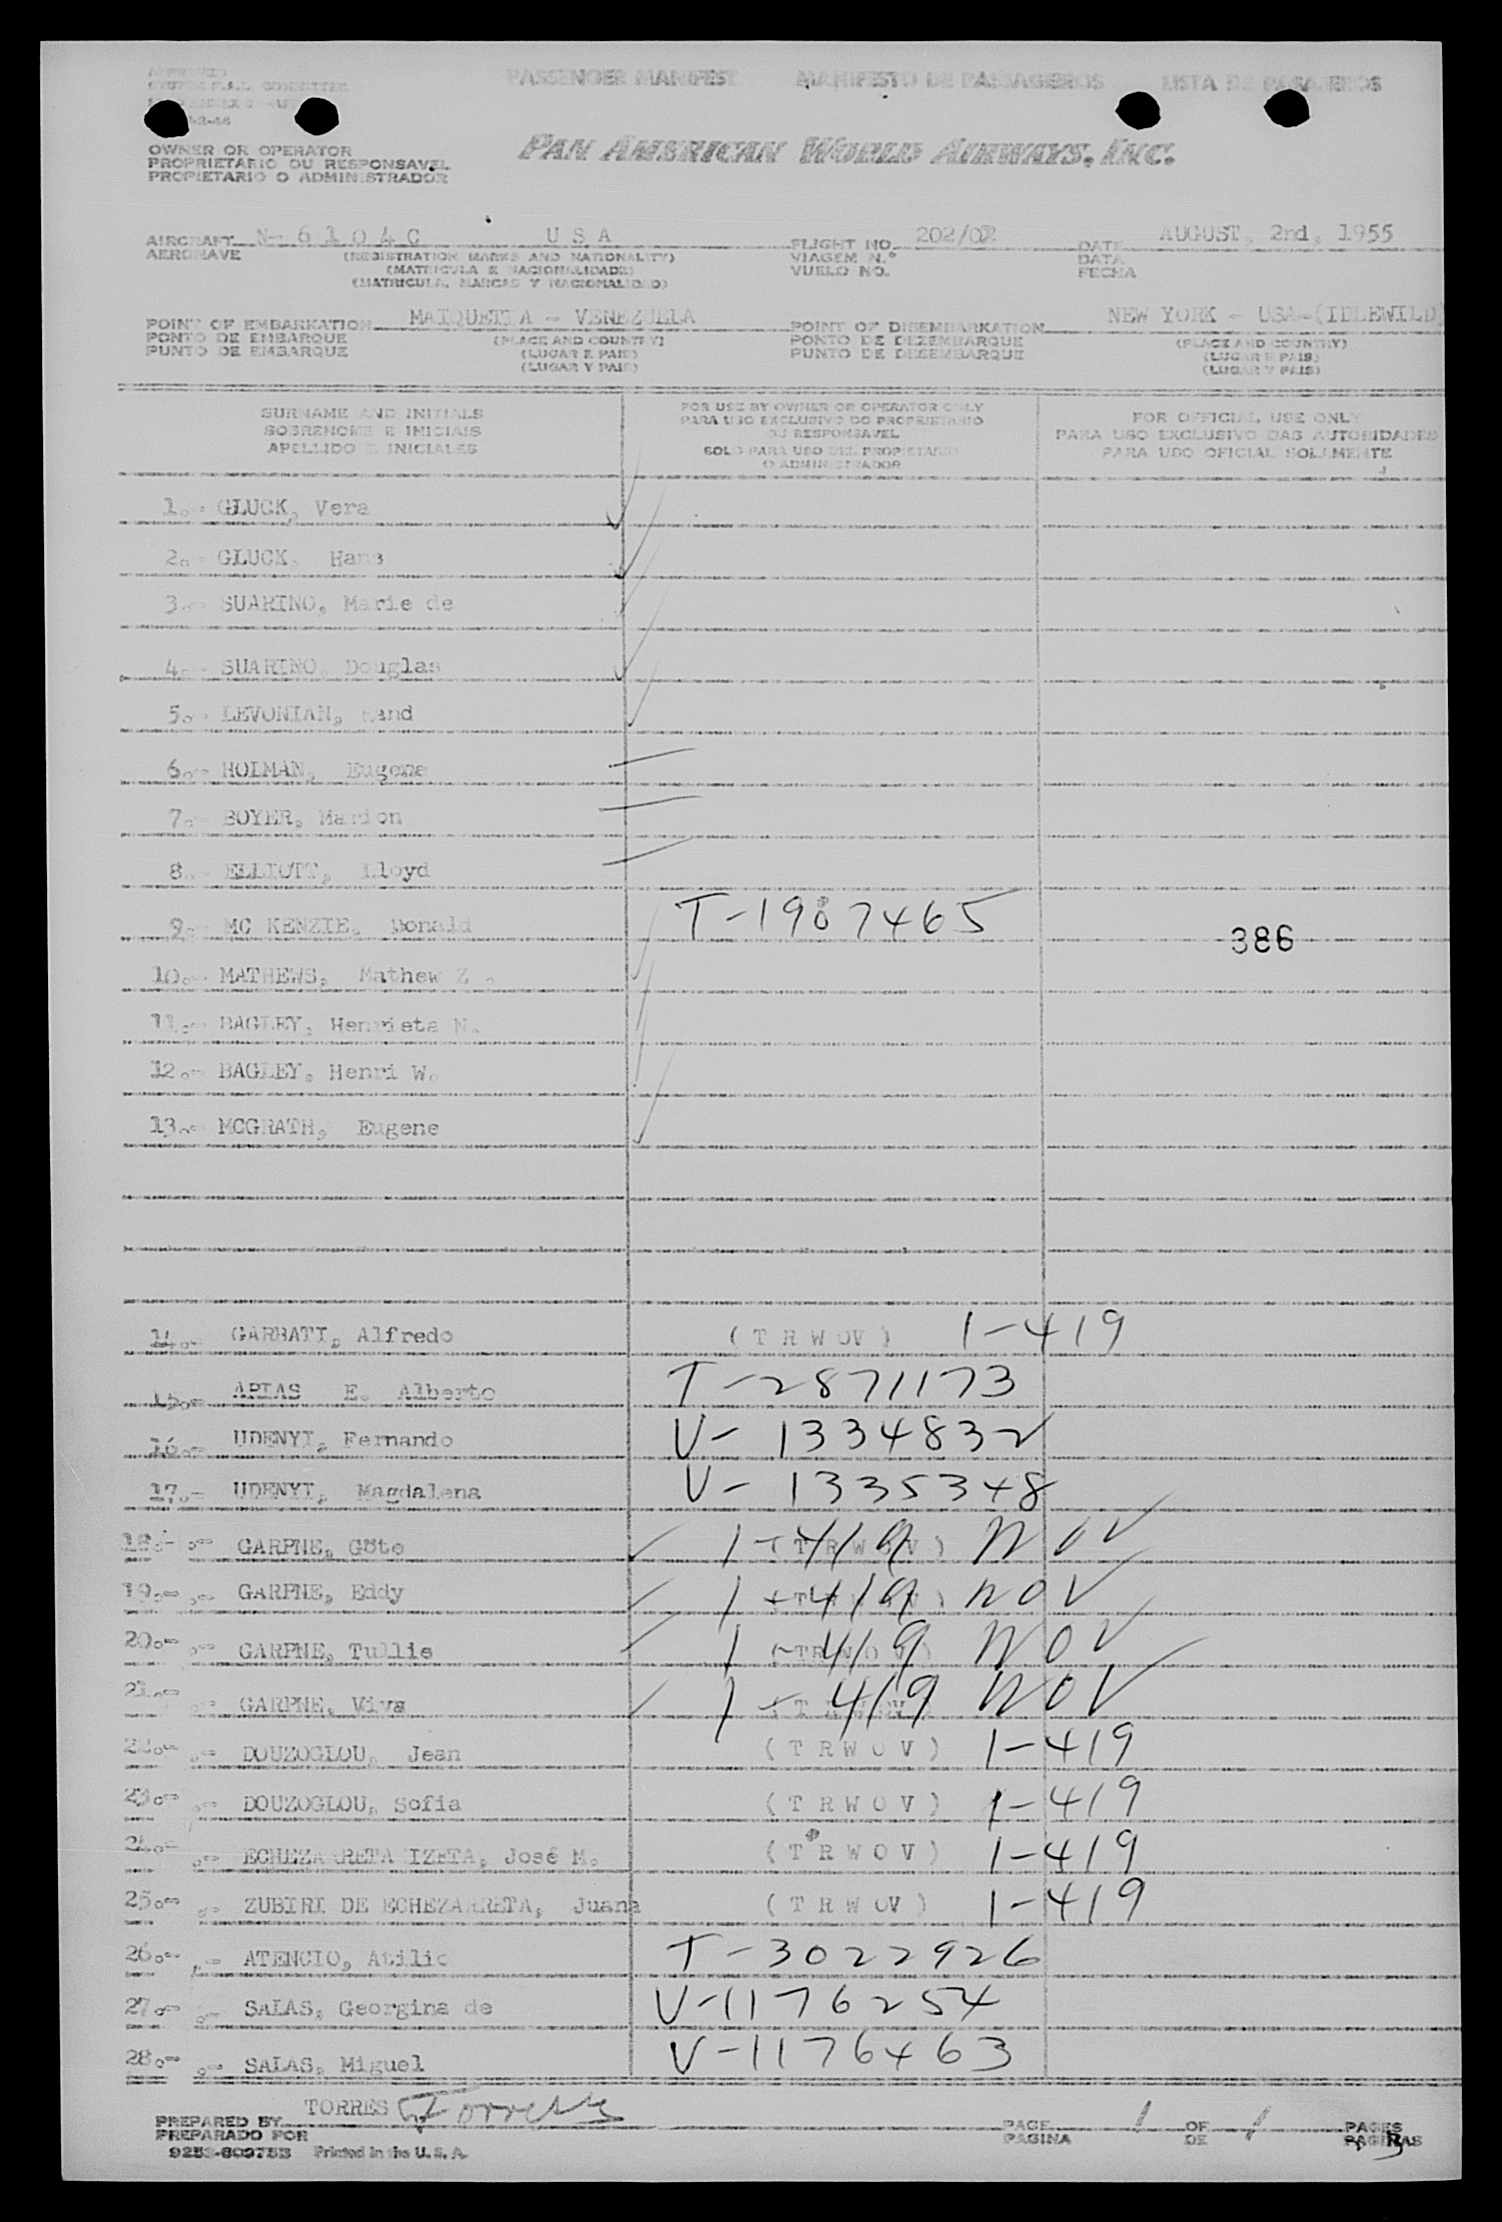 PASSENGER MANIFEST MANIFESTO DE PASSAGEIROS LISTA DE PASAJEROS
OWNER OR OPERATOR
PROPRIETARIO OU RESPONSAVEL
PROPIETARIO O ADMINISTRADOR
PAN AMERICAN WORLD AIRWAYS, INC.
AIRCRAFT N- 6 1 0 4 C U S A FLIGHT NO. 202/02 DATE AUGUST, 2nd, 1955
AERONAVE (REGISTRATION MARKS AND NATIONALITY) VIAGEM N.º DATA
(MATRICULA E NACIONALIDADE) VUELO NO. FECHA
(MATRICULA, MARCAS Y NACIONALIDAD)
POINT OF EMBARKATION MAIQUETIA - VENEZUELA POINT OF DISEMBARKATION NEW YORK - USA-(IDLEWILD)
PONTO DE EMBARQUE (PLACE AND COUNTRY) PONTO DE DEZEMBARQUE (PLACE AND COUNTRY)
PUNTO DE EMBARQUE (LUGAR E PAIS) PUNTO DE DESEMBARQUE (LUGAR E PAIS)
(LUGAR Y PAIS) (LUGAR Y PAIS)
SURNAME AND INITIALS FOR USE BY OWNER OR OPERATOR ONLY FOR OFFICIAL USE ONLY
SOBRENOME E INICIAIS PARA USO EXCLUSIVO DO PROPRIETARIO OU RESPONSAVEL PARA USO EXCLUSIVO DAS AUTORIDADES
APELLIDO E INICIALES SOLO PARA USO DEL PROPIETARIO O ADMINISTRADOR PARA USO OFICIAL SOLAMENTE
1.- GLUCK, Vera
2.- GLUCK, Hans
3.- SUARINO, Marie de
4.- SUARINO, Douglas
5.- LEVONIAN, Hand
6.- HOLMAN, Eugene
7.- BOYER, Marion
8.- ELLIOTT, Lloyd
9.- MC KENZIE, Donald T-1987465
386
10.- MATHEWS, Mathew Z.
11.- BAGLEY, Henrieta N.
12.- BAGLEY, Henri W.
13.- MCGRATH, Eugene
14.- GARBATI, Alfredo ( T R W OV ) 1-419
15.- ARIAS E. Alberto T-2871173
16.- UDENYI, Fernando V-1334832
17.- UDENYI, Magdalena V-1335348
18.- GARPNE, Göte ( T R W O V ) 1-419 NOV
19.- GARPNE, Eddy 1-419 NOV
20.- GARPNE, Tullie ( TRWOV ) 1-419 NOV
21.- GARPNE, Viva 1-419 NOV
22.- DOUZOGLOU, Jean ( T R W O V ) 1-419
23.- DOUZOGLOU, Sofia ( T R W O V ) 1-419
24.- ECHEZARRETA IZETA, José M. ( T R W O V ) 1-419
25.- ZUBIRI DE ECHEZARRETA, Juana ( T R W OV ) 1-419
26.- ATENCIO, Atilio T-3022926
27.- SALAS, Georgina de V-1176254
28.- SALAS, Miguel V-1176463
PREPARED BY TORRES Torres PAGE 1 OF 1 PAGES
PREPARADO POR PAGINA DE PAGINAS
Printed in the U. S. A. 3